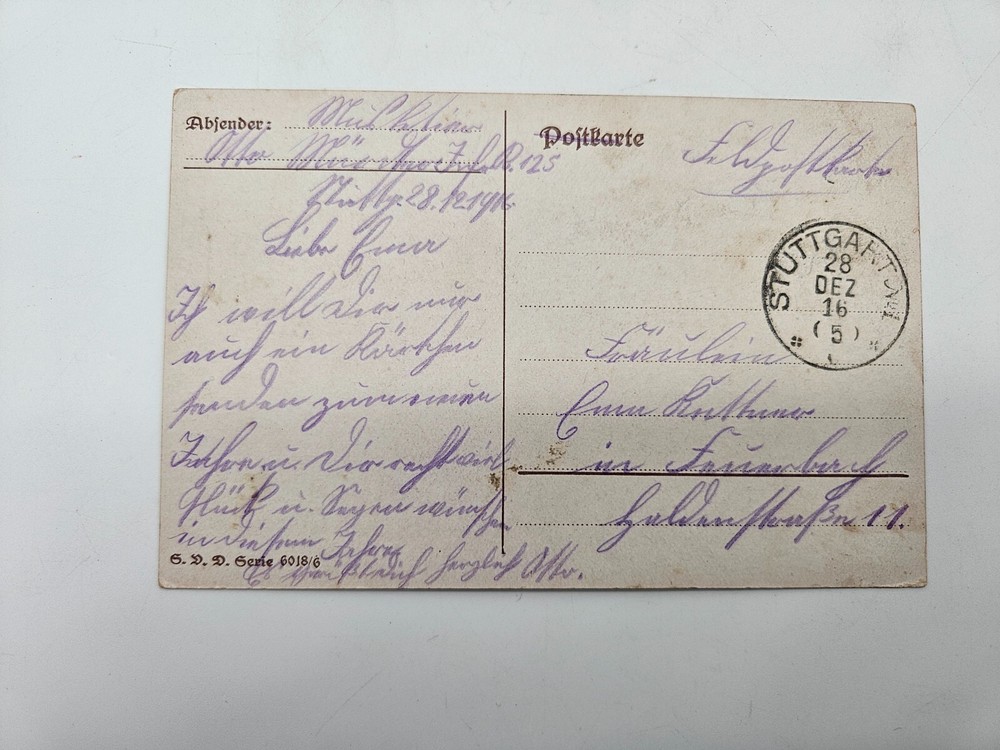 Absender: Musketier
Otto Inf. R. 125
Stuttg. 28.12.1916
Liebe Ema
Ich will Dir nur
auch ein Kärtchen
senden zum neuen
Jahre u. Dir recht viel
Glück u. Segen wünschen
in diesem Jahre
Es grüßt dich herzlich Otto.
S. V. D. Serie 6018/6
Postkarte
Feldpostkarte
STUTTGART
28
DEZ
16
(5)
Fräulein
Ema Kuttner
in Feuerbach
Haldenstraße 11.